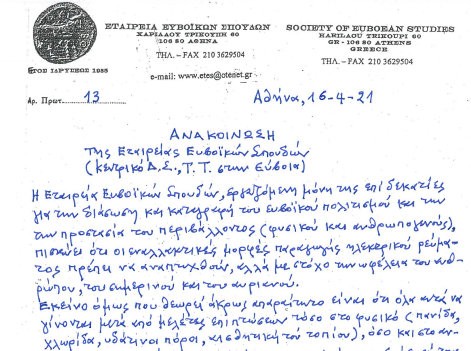 ΕΤΑΙΡΕΙΑ ΕΥΒΟΪΚΩΝ ΣΠΟΥΔΩΝ
ΧΑΡΙΛΑΟΥ ΤΡΙΚΟΥΠΗ 60
106 80 ΑΘΗΝΑ
ΤΗΛ. – FAX 210 3629504
SOCIETY OF EUBOEAN STUDIES
HARILAOU TRIKOUPI 60
GR - 106 80 ATHENS
GREECE
ΤΗΛ. – FAX 210 3629504
e-mail: www.etes@otenet.gr
ΕΤΟΣ ΙΔΡΥΣΕΩΣ 1935
Αρ. Πρωτ. 13
Αθήνα, 16-4-21
ΑΝΑΚΟΙΝΩΣΗ
Της Εταιρείας Ευβοϊκών Σπουδών
(κεντρικό Δ.Σ., Τ.Τ. στην Εύβοια)
Η Εταιρεία Ευβοϊκών Σπουδών, εργαζόμενη μόνη της επί δεκαετίες
για την διάσωση και καταγραφή του ευβοϊκού πολιτισμού και την
την προστασία του περιβάλλοντος (φυσικού και ανθρωπογενούς),
πιστεύει ότι οι εναλλακτικές μορφές παραγωγής ηλεκτρικού ρεύμα-
τος πρέπει να αναπτυχθούν, αλλά με στόχο την ωφέλεια του αν-
θρώπου, του σημερινού και του αυριανού.
Εκείνο όμως που θεωρεί άκρως απαραίτητο είναι ότι όλα αυτά να
γίνονται μετά από μελέτες επιπτώσεων τόσο στο φυσικό (πανίδα,
χλωρίδα, υδάτινοι πόροι, αισθητική του τοπίου), όσο και στο αν-